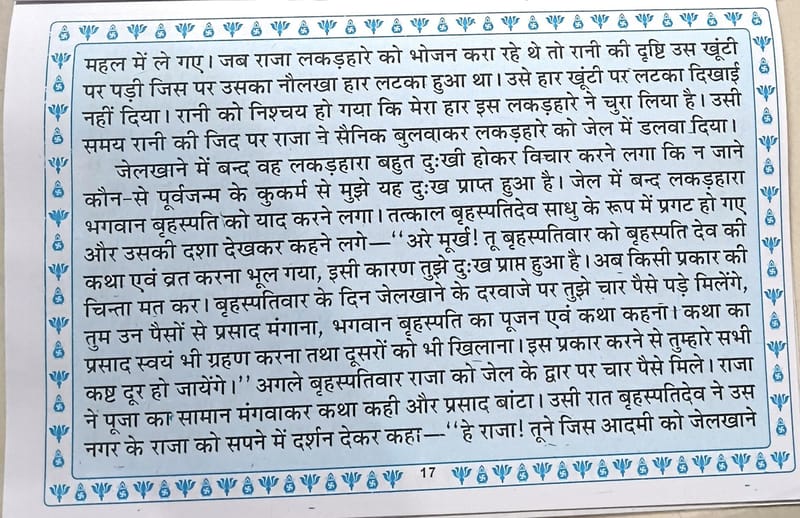 महल में ले गए। जब राजा लकड़हारे को भोजन करा रहे थे तो रानी की दृष्टि उस खूंटी
पर पड़ी जिस पर उसका नौलखा हार लटका हुआ था। उसे हार खूंटी पर लटका दिखाई
नहीं दिया। रानी को निश्चय हो गया कि मेरा हार इस लकड़हारे ने चुरा लिया है। उसी
समय रानी की जिद पर राजा ने सैनिक बुलवाकर लकड़हारे को जेल में डलवा दिया।
जेलखाने में बन्द वह लकड़हारा बहुत दुःखी होकर विचार करने लगा कि न जाने
कौन-से पूर्वजन्म के कुकर्म से मुझे यह दुःख प्राप्त हुआ है। जेल में बन्द लकड़हारा
भगवान बृहस्पति को याद करने लगा। तत्काल बृहस्पतिदेव साधु के रूप में प्रगट हो गए
और उसकी दशा देखकर कहने लगे—‘‘अरे मूर्ख! तू बृहस्पतिवार को बृहस्पति देव की
कथा एवं व्रत करना भूल गया, इसी कारण तुझे दुःख प्राप्त हुआ है। अब किसी प्रकार की
चिन्ता मत कर। बृहस्पतिवार के दिन जेलखाने के दरवाजे पर तुझे चार पैसे पड़े मिलेंगे,
तुम उन पैसों से प्रसाद मंगाना, भगवान बृहस्पति का पूजन एवं कथा कहना। कथा का
प्रसाद स्वयं भी ग्रहण करना तथा दूसरों को भी खिलाना। इस प्रकार करने से तुम्हारे सभी
कष्ट दूर हो जायेंगे।’’ अगले बृहस्पतिवार राजा को जेल के द्वार पर चार पैसे मिले। राजा
ने पूजा का सामान मंगवाकर कथा कही और प्रसाद बांटा। उसी रात बृहस्पतिदेव ने उस
नगर के राजा को सपने में दर्शन देकर कहा—‘‘हे राजा! तूने जिस आदमी को जेलखाने
17